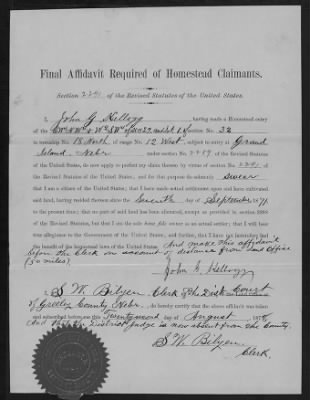 Final Affidavit Required of Homestead Claimants.
Section 2291 of the Revised Statutes of the United States.
I, John G. Kellogg having made a Homestead entry
of the section No. 32
in township No. 18 North, of range No. 12 West, subject to entry at Grand
Island, Nebr under section No. 2289 of the Revised Statutes
of the United States, do now apply to perfect my claim thereto by virtue of section No. 2291 of
the Revised Statutes of the United States, and for that purpose do solemnly swear
that I am a citizen of the United States; that I have made actual settlement upon and have cultivated
said land, having resided thereon since the Seventh day of September, 1871
to the present time; that no part of said land has been alienated, except as provided in section 2288
of the Revised Statutes, but that I am the sole bona fide owner as an actual settler; that I will bear
true allegiance to the Government of the United States; and further, that I have not heretofore perfected
the benefit of the homestead laws of the United States. And make this affidavit
before the Clerk on account of distance from Land Office
(50 miles)
John G. Kellogg
I, S. W. Bilyeu, Clerk of the Dist. Court
of Greeley County Nebr., do hereby certify that the above affidavit was taken
and subscribed before me this Twenty second day of August,
And that the District Judge is now absent from the County.
S. W. Bilyeu
Clerk.